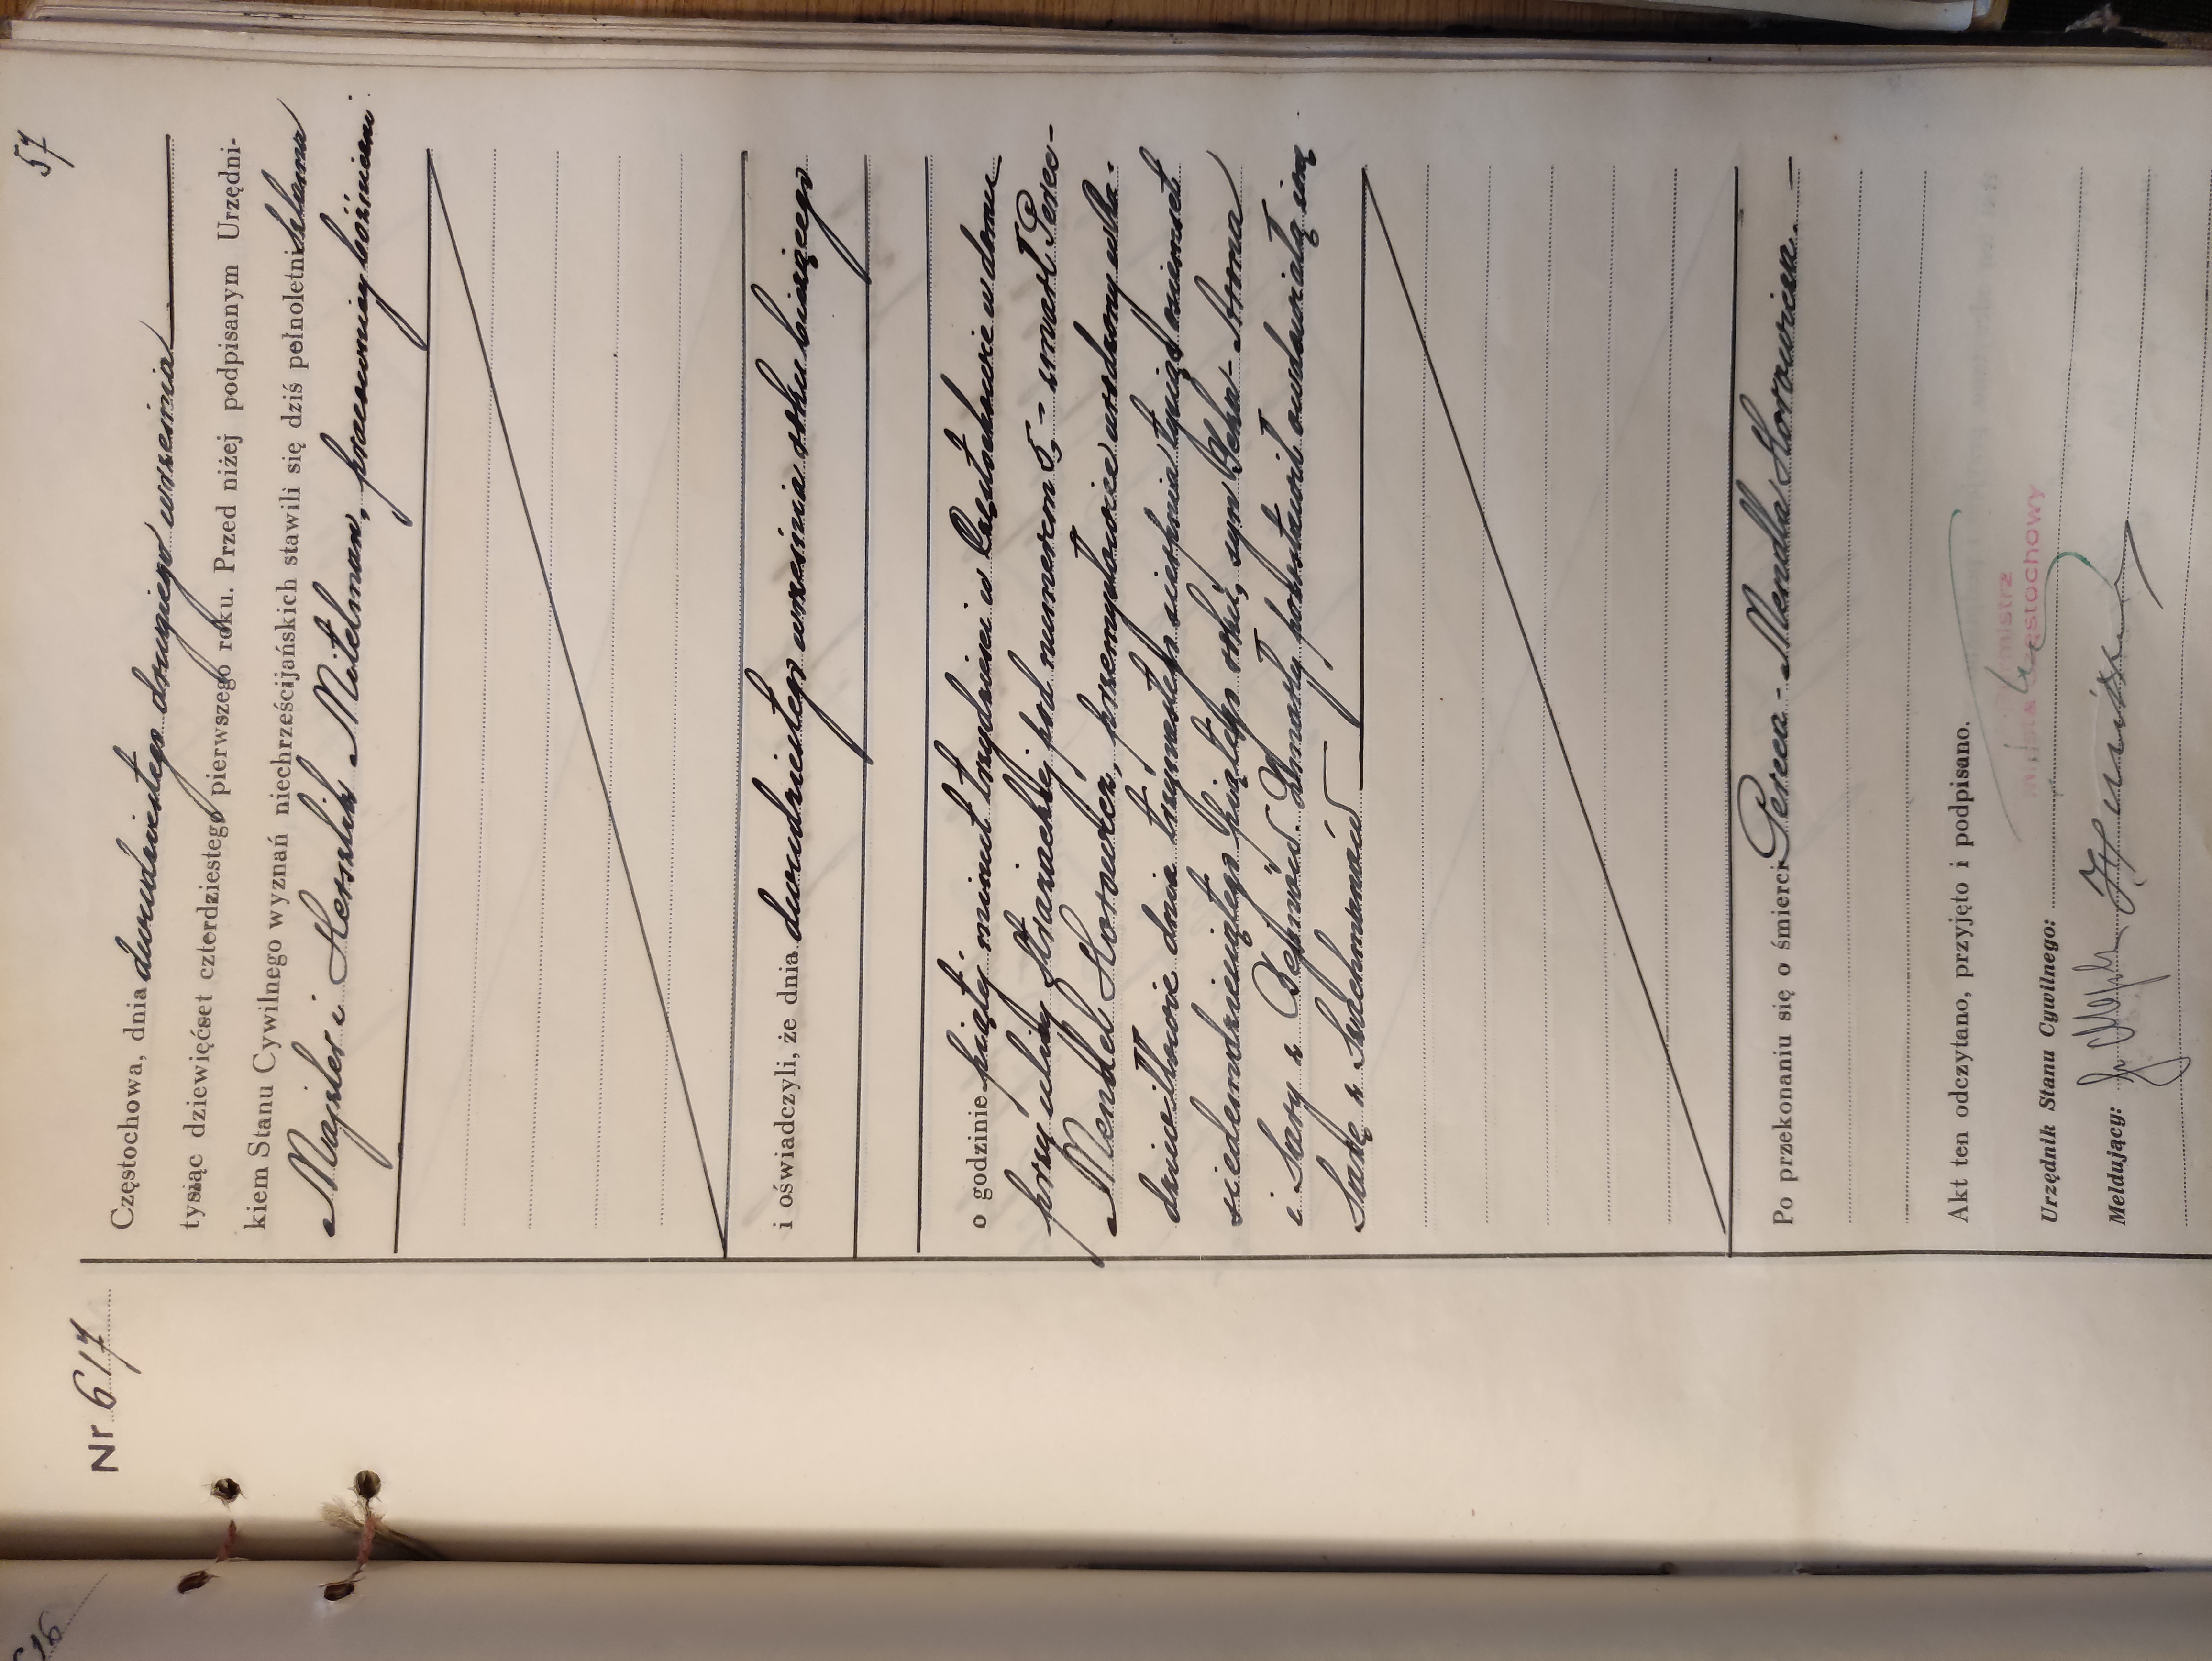 57
Nr 617
Częstochowa, dnia dwudziestego drugiego września
tysiąc dziewięćset czterdziestego pierwszego roku. Przed niżej podpisanym Urzędni-
kiem Stanu Cywilnego wyznań niechrześcijańskich stawili się dziś pełnoletni Szlama
Majzler i Herszlik Mitelman, pracownicy bóżniczni
i oświadczyli, że dnia dwudziestego września roku bieżącego
o godzinie piątej minut trzydzieści w Częstochowie w domu
przy ulicy Strażackiej pod numerem 5, - zmarł Perec-
Mendel Horowicz, przemysłowiec urodzony w
dnia trzynastego sierpnia tysiąc osiemset
siedemdziesiątego piątego roku, syn
i Sary z Zmarły pozostawił owdowiałą żonę
Po przekonaniu się o śmierci Pereca - Mendla Horowicza. -
Akt ten odczytano, przyjęto i podpisano.
Miasta Częstochowy
Urzędnik Stanu Cywilnego:
Meldujący:
616